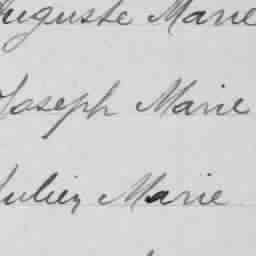 Auguste Marie
Joseph Marie
Julien Marie